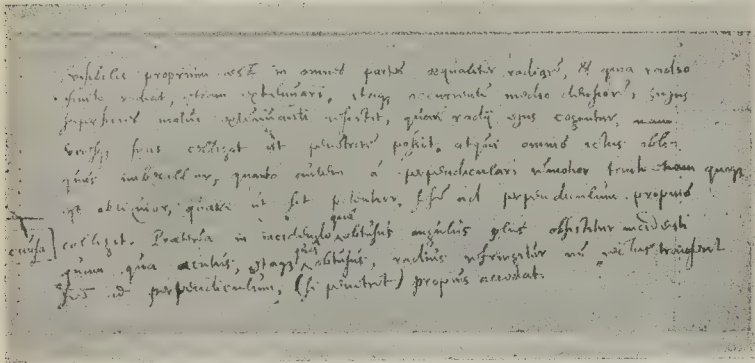 visibilis proprium est in omnes partes æqualiter radiare, & qua radio
finite radiat, etiam extenuari, itaq; occurrente medio densiore, cujus
superficies motui extenuanti resistit, quare radij ejus coguntur,
colligat ut penetrare possit. atqui omnis ictus obli-
quus imbecillior, quanto autem a perpendiculari remotior tanto etiam quoq;
est obliquior, quare ut sit potentior, sese ad perpendiculum propius
colligit. Præterea in incidendo qua obtusus angulus plus obsistitur incidenti
quam qua acutus, itaq; obtusus, radius refringitur ne rectus transeat
sed ad perpendiculum, (si penetret) propius accedat.